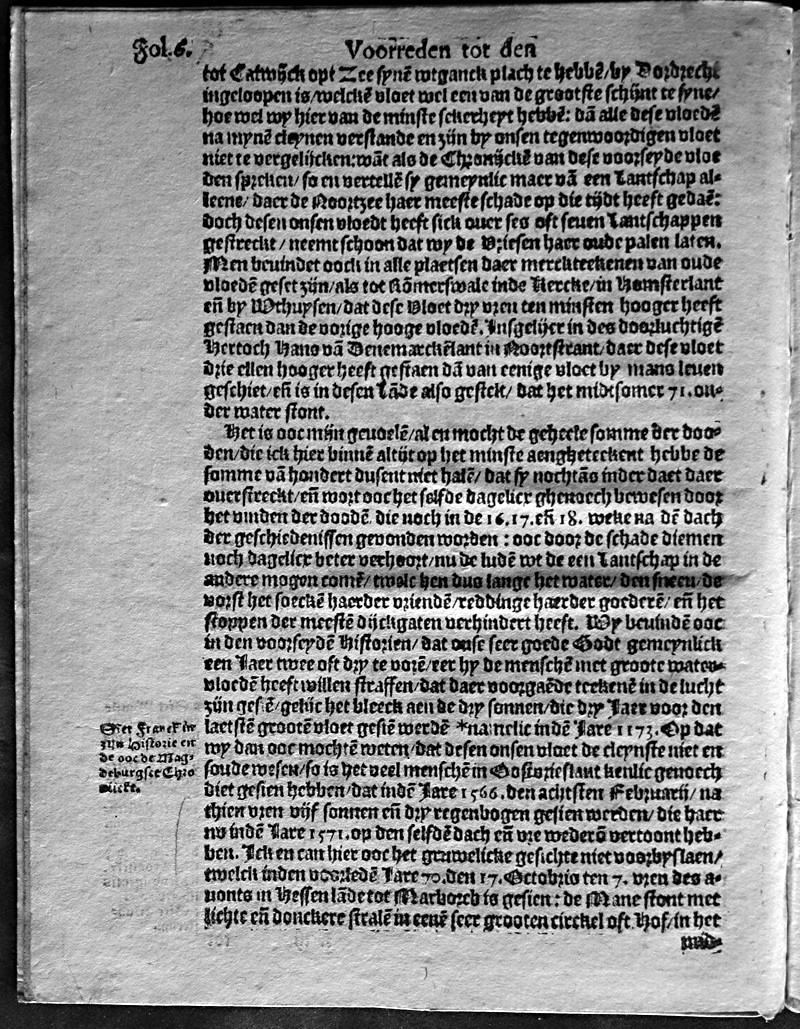 Fol. 6. Voorreden tot den
tot Catwijck opt Zee synē wtganck plach te hebbē/by Dordrecht
ingeloopen is/welckē vloet wel een van de grootste schijnt te syne/
hoe wel wy hier van de minste sekerheyt hebbē: dā alle dese vloedē
na mynē cleynen verstande en zijn by onsen tegenwoordigen vloet
niet te vergelijcken: wāt als de Chronijckē van dese voorseyde vloe
den sprcken/ so en vertellē sy gemeynlic maer vā een Lantschap al-
leene/ daer de Noortzee haer meeste schade op die tijdt heeft gedaē:
doch desen onsen vloedt heeft sick ouer ses oft seuen Lantschappen
gestreckt/ neemt schoon dat wy de Vriesen haer oude palen laten.
Men beuindet oock in alle plaetsen daer merckteekenen van oude
vloedē geset zijn/als tot Rōmerswale inde Kercke/in Hemsterlant
eñ by Wthuysen/dat dese Vloet dry vren ten minsten hooger heeft
gestaen dan de vorige hooge vloedē. Insgelijcx in des doorluchtigē
Hertoch Hans vā Denemarckēlant in Noortstrant/daer dese vloet
drie ellen hooger heeft gestaen dā van eenige vloet by mans leuen
geschiet/eñ is in desen Lāde also gestelt/ dat het midtsomer 71. on-
der water stont.
Het is ooc mijn geuoelē/al en mocht de geheele somme der doo-
den/die ick hier binnē altijt op het minste aengheteekent hebbe de
somme vā hondert dusent niet halē/ dat sy nochtās inder daet daer
ouer streckt/eñ wort ooc het selfde dagelicx ghenoech bewesen door
het vinden der doodē, die noch in de 16.17. eñ 18. weke na dē dach
der geschiedenissen geuonden worden: ooc door de schade diemen
noch dagelicx beter verhoort/nu de ludē wt de een Lantschap in de
andere mogen comē/ twelc hen dus lange het water/ den sneeu/de
vorst het soeckē haerder vriendē/reddinge haerder goederē/ eñ het
stoppen der meestē dijckgaten verhindert heeft. Wy beuindē ooc
in den voorseydē Historien/ dat onse seer goede Godt gemeynlick
een Jaer twee oft dry te vorē/eer hy de menschē met groote water-
vloedē heeft willen straffen/dat daer voorgaēde teekenē in de lucht
zijn gesiē/gelijc het bleeck aen de dry sonnen/die dry Jaer voor den
laetstē grootē vloet gesiē werdē *namelic indē Jare 1173. Op dat
wy dan ooc mochtē weten/dat desen onsen vloet de cleynste niet en
soude wesen/so is het veel menschē in Oostvrieslant kenlic genoech
diet gesien hebben/dat indē Jare 1566. den achtsten Februarij/ na
thien vren vijf sonnen eñ dry regenbogen gesien werden/ die haer
nv indē Jare 1571. op den selfdē dach eñ vre wederō vertoont heb-
ben. Ick en can hier ooc het gruwelicke gesichte niet voorbyslaen/
twelck inden voorledē Jare 70. den 17. Octobris ten 7. vren des a-
uonts in Hessen lāde tot Marborch is gesien: de Mane stont met
lichte eñ donckere stralē in eenē seer grooten circkel oft Hof/in het
mid-
Siet Franck in
zijn Historie en
de ooc de Mag-
deburgsce Chro
nijcke.